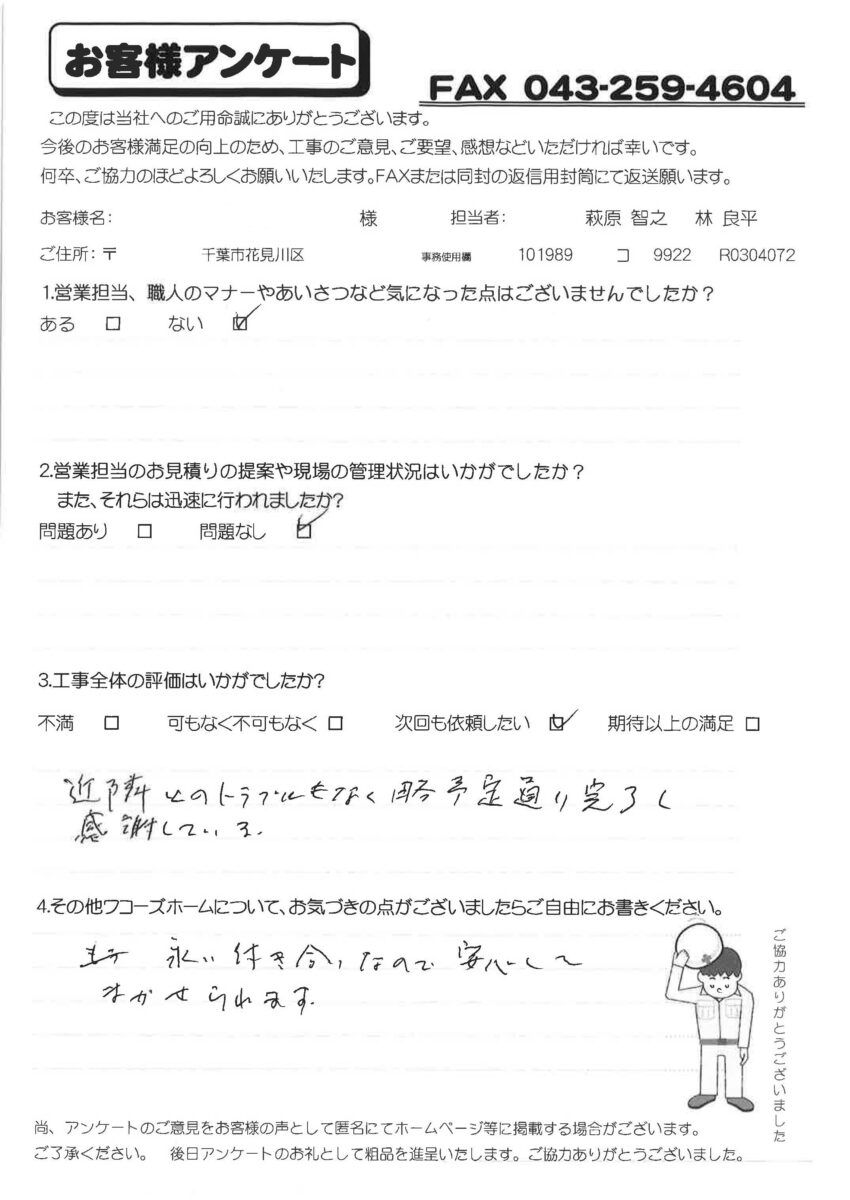 お客様アンケート
FAX 043-259-4604
この度は当社へのご用命誠にありがとうございます。
今後のお客様満足の向上のため、工事のご意見、ご要望、感想などいただければ幸いです。
何卒、ご協力のほどよろしくお願いいたします。FAXまたは同封の返信用封筒にて返送願います。
お客様名： 様 担当者： 萩原 智之 林 良平
ご住所：〒 千葉市花見川区 事務使用欄 101989 コ 9922 R0304072
1.営業担当、職人のマナーやあいさつなど気になった点はございませんでしたか？
ある □ ない ☑
2.営業担当のお見積りの提案や現場の管理状況はいかがでしたか？
また、それらは迅速に行われましたか?
問題あり □ 問題なし ☑
3.工事全体の評価はいかがでしたか?
不満 □ 可もなく不可もなく □ 次回も依頼したい ☑ 期待以上の満足 □
近隣とのトラブルもなく略予定通り完了し
感謝している.
4.その他ワコーズホームについて、お気づきの点がございましたらご自由にお書きください。
永い付き合いなので安心して
まかせられます.
ご協力ありがとうございました
尚、アンケートのご意見をお客様の声として匿名にてホームページ等に掲載する場合がございます。
ご了承ください。 後日アンケートのお礼として粗品を進呈いたします。ご協力ありがとうございました。